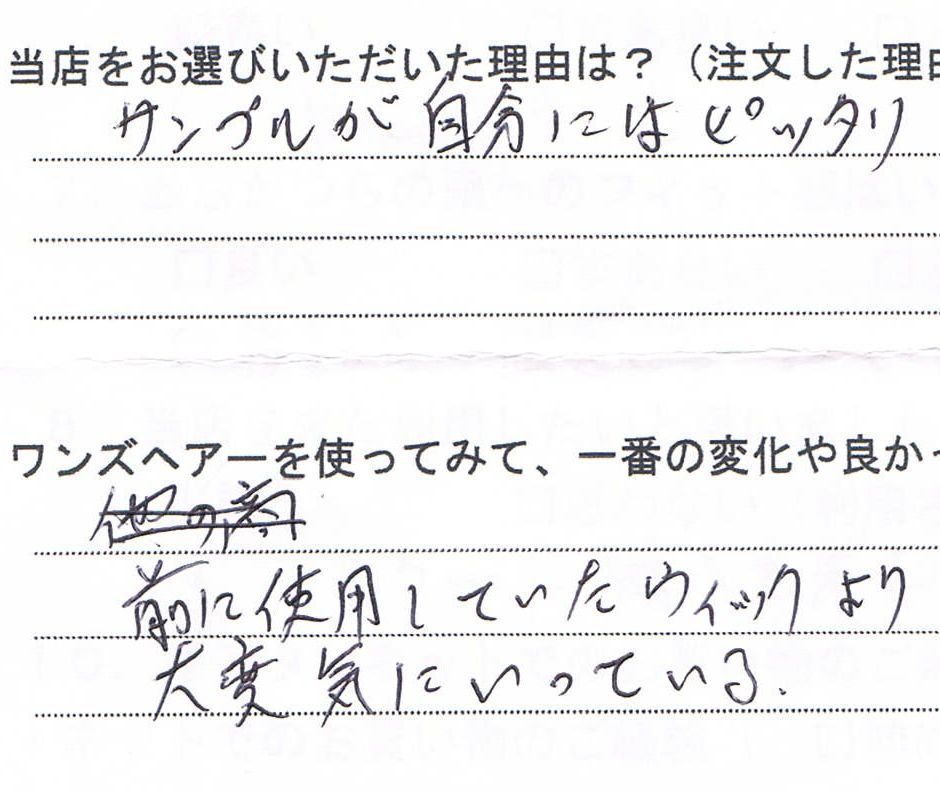 当店をお選びいただいた理由は?（注文した理由
サンプルが自分にはピッタリ
ワンズヘアーを使ってみて、一番の変化や良かっ
他の商
前に使用していたウィックより
大変気にいっている.